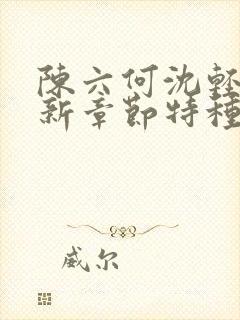 陳六何沈輕
新章節特種
威尔